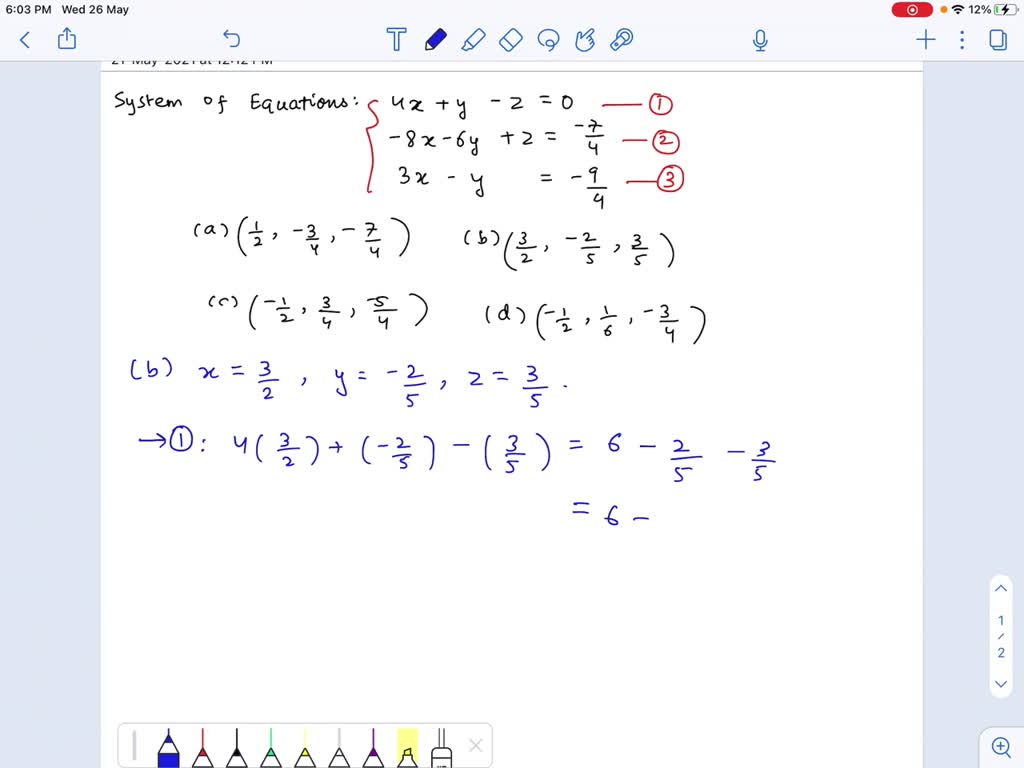 6:03 PM Wed 26 May 12%
T
21 May 2021 at 12:12 PM
System of Equations: 4x + y - z = 0 — ①
-8x - 6y + z = -7/4 — ②
3x - y = -9/4 — ③
(a) (1/2, -3/4, -7/4) (b) (3/2, -2/5, 3/5)
(c) (-1/2, 3/4, -5/4) (d) (-1/2, 1/6, -3/4)
(b) x = 3/2, y = -2/5, z = 3/5.
→①: 4(3/2) + (-2/5) - (3/5) = 6 - 2/5 - 3/5
= 6 -
1
/
2